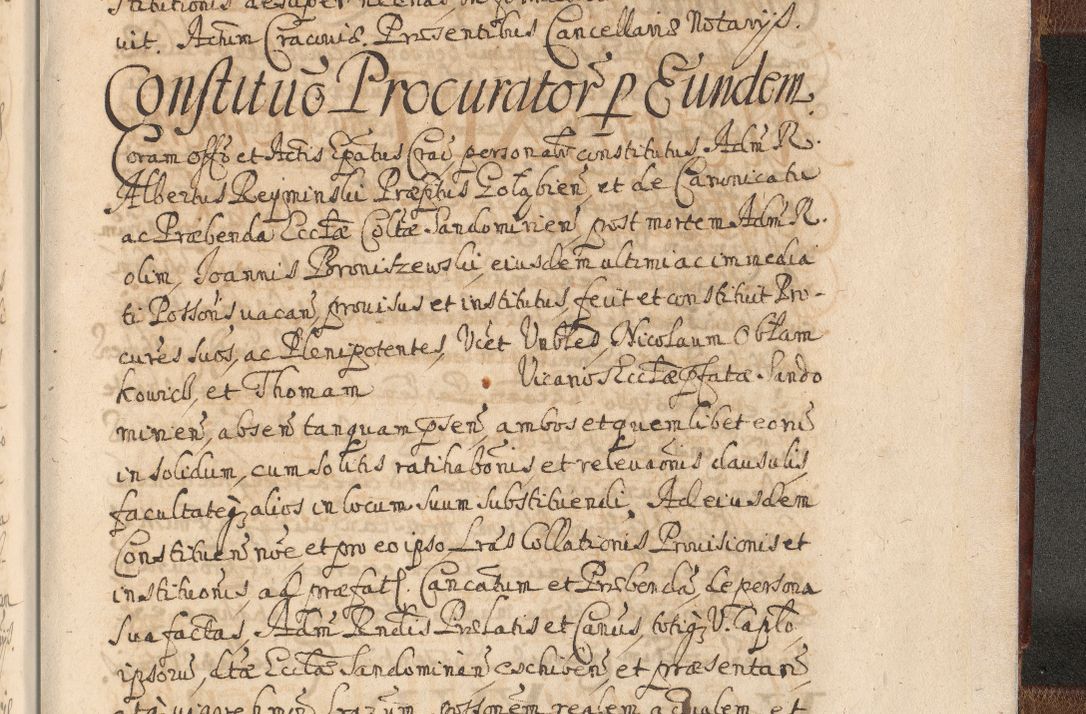 stitutionis desuper
uit. Actum Cracoviæ. Præsentibus Cancellariæ Notarijs.
Constituō Procuratorū p Eundem.
Coram offō et Actis Ep̄atus Crac, personal̄r constitutus Adm̄ R.
Albertus Reyminski Præp̄tus Goląbien̄, et de Canonicatu
ac Præbenda Eccl̄æ Col̄tæ Sandomirien̄, post mortem Adm̄ R.
olim, Joannis Bronitzewski, eiusdem ultimi ac immedia
ti Possoris vacan̄, provisus et institutus, fecit et constituit Pro-
cur̄es suos, ac Plenipotentes, Vcet Vnbles, Nicolaum Obłam
kowicz, et Thomam Vicarios Eccl̄æ p̄fatæ Sando
mirien̄, absen̄ tanquam p̄sen̄, ambos et quemlibet eorū
in solidum, cum solitis ratihab̄onis et relevaōnis clausulis,
facultateq̨ alios in locum suum substituendi. Ad eiusdem
Constituen̄ nōe, et pro eo ipso L̄ras Collationis Provisionis et
institu̇onis, ad præfat. Cancātum et Præbendā, de persona
sua factas, Adm̄ R̄ndis Prælatis et Canūs totiq̨ V. Cap̄lo
ipsorū, dtæ Eccl̄æ Sandomirien̄ exhiben̄, et præsentan̄